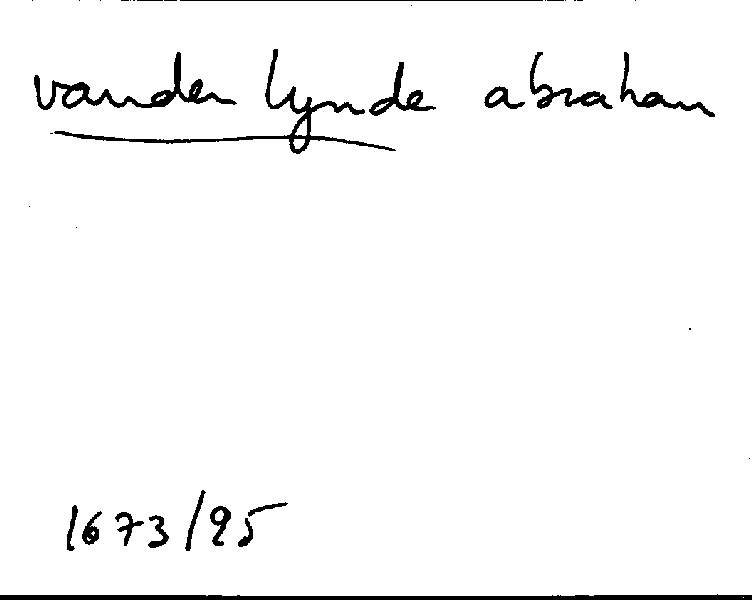 vanden lynde abraham
1673/95